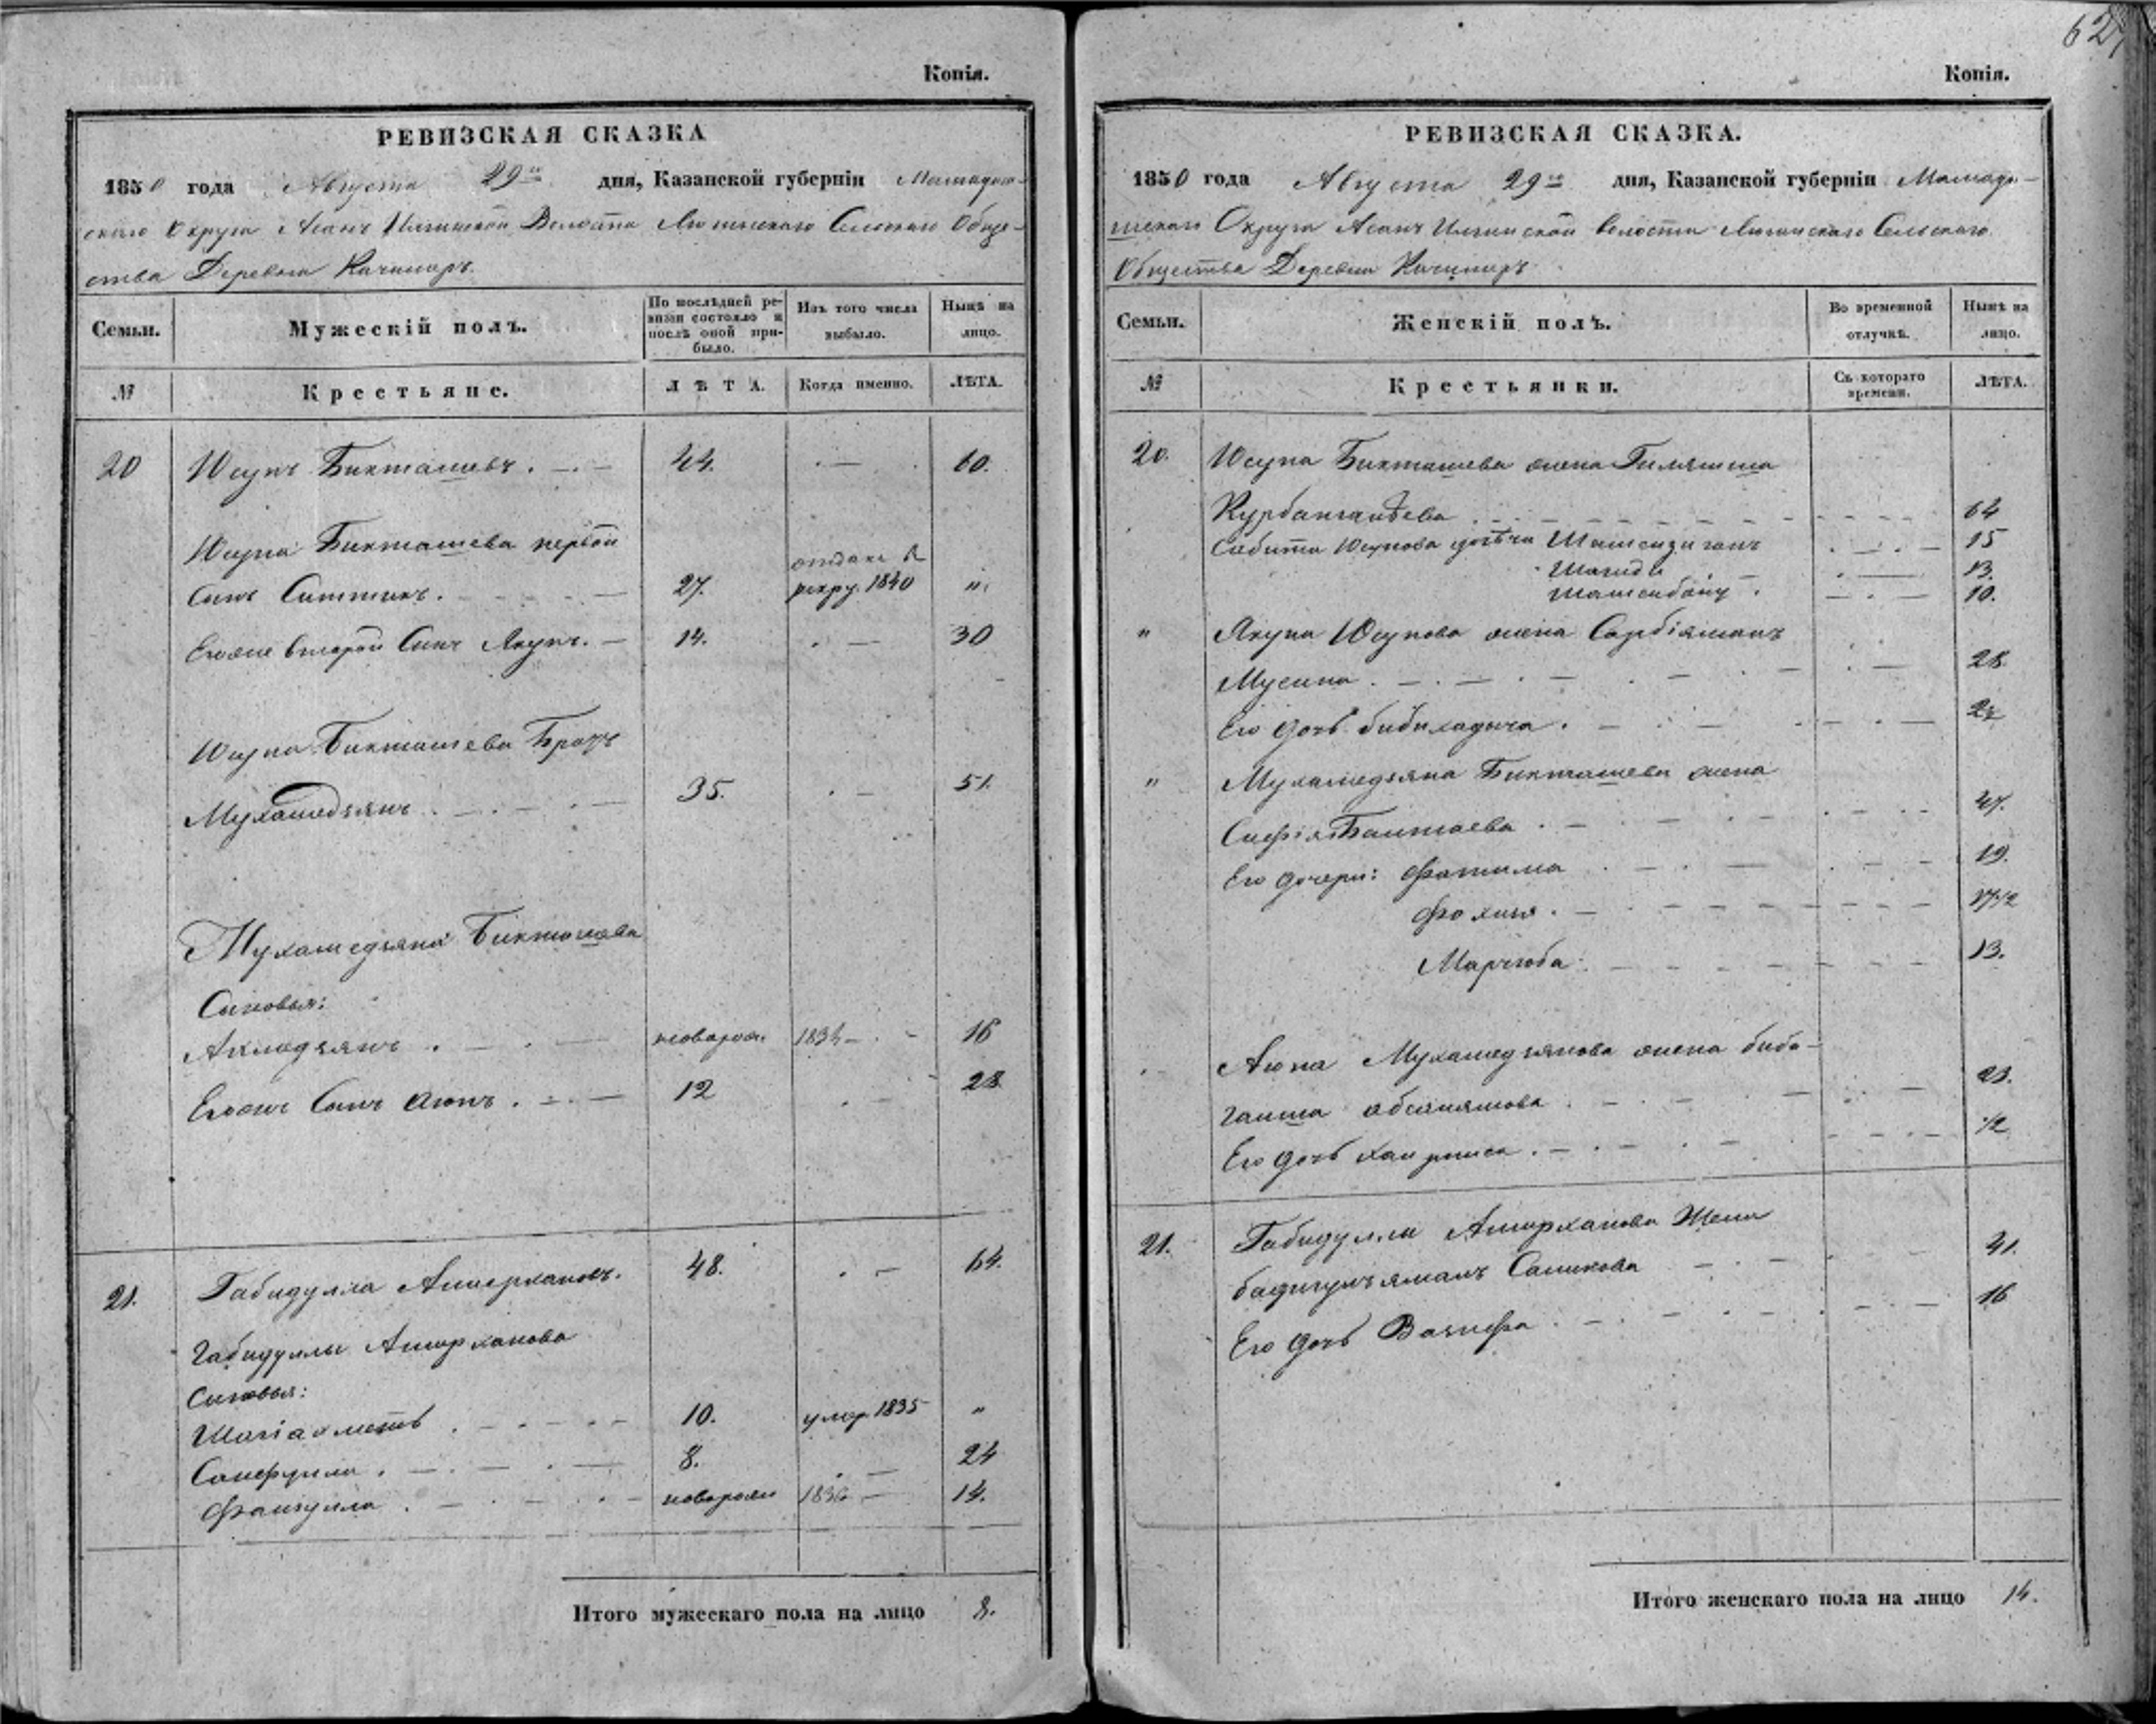 627
Копія.
РЕВИЗСКАЯ СКАЗКА
1850 года Августа 29го дня, Казанской губерніи Мамадыш-
скаго Округа Асанъ Илгинской Волости Сельскаго Обще-
ства Деревни Качимиръ.
Семьи. Мужескій полъ. По послѣдней ре-визіи состояло и послѣ оной при-было. Изъ того числа выбыло. Нынѣ на лицо.
№ Крестьяне. ЛѢТА. Когда именно. ЛѢТА.
20 Юсупъ Бикташевъ . 44. . — . 60.
Юсупа Бикташева первой
отданъ в
Сынъ . 27. рекру. 1840 "
Егоже второй Сынъ Якупъ. — 14. . — 30
Юсупа Бикташева Братъ
Мухамедзянъ . 35. . — 51.
Мухамедзяна Бикташева
Сыновья:
Ахмедзянъ . новорож. 1834 — 16
Егожъ Сынъ Аюпъ . 12 . — 28
21. Габидулла Амирхановъ. 48. . — 64.
Габидуллы Амирханова
Сыновья:
Шагіахметъ . 10. умер. 1835 "
Сайфулла . 8. . — 24
Файзулла . новорож 1836 — 14.
Итого мужескаго пола на лицо 8.
Копія.
РЕВИЗСКАЯ СКАЗКА.
1850 года Августа 29го дня, Казанской губерніи Мамады-
шскаго Округа Асанъ Илгинской волости Сельскаго
Общества Деревни Качимиръ
Семьи. Женскій полъ. Во временной отлучкѣ. Нынѣ на лицо.
№ Крестьянки. Съ котораго времени. ЛѢТА.
20. Юсупа Бикташева жена
Курбангалѣева . 64
Юсупова 15
Шагида . 13.
Шамсибану . 10.
" Якупа Юсупова жена Сарбіямалъ
Мусина . 28.
Его дочь бибихадыча .
" Мухамедзяна Бикташева жена
Сафія . 47.
Его дочери: Фатима . 19.
17
Марзюба . 13.
Аюпа Мухамедзянова жена биби-
гайша . 23.
Его дочь . 1/2
21. Габидуллы Амирханова Жена
бадигулъямалъ Саликова 41.
Его дочь Вазифа . 16
Итого женскаго пола на лицо 14.